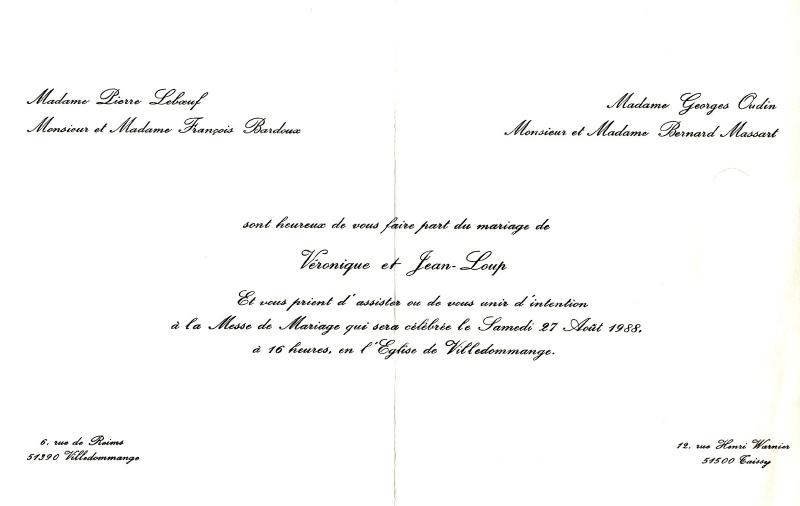 Madame Pierre Lebœuf
Monsieur et Madame François Bardoux
Madame Georges Oudin
Monsieur et Madame Bernard Massart
sont heureux de vous faire part du mariage de
Véronique et Jean-Loup
Et vous prient d'assister ou de vous unir d'intention
à la Messe de Mariage qui sera célébrée le Samedi 27 Août 1988,
à 16 heures, en l'Eglise de Villedommange.
6, rue de Reims
51390 Villedommange
12, rue Henri Warnier
51500 Taissy